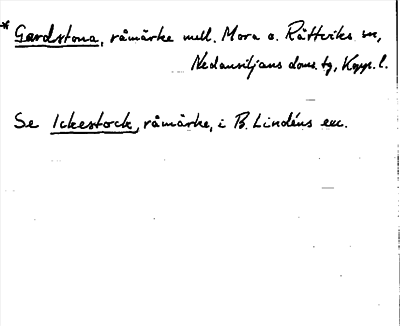 * Gardstona, råmärke mell. Mora o. Rättviks sn,
Nedansiljans doms. tg, Kopp. l.
Se Ickestock, råmärke, i B. Lindéns exc.